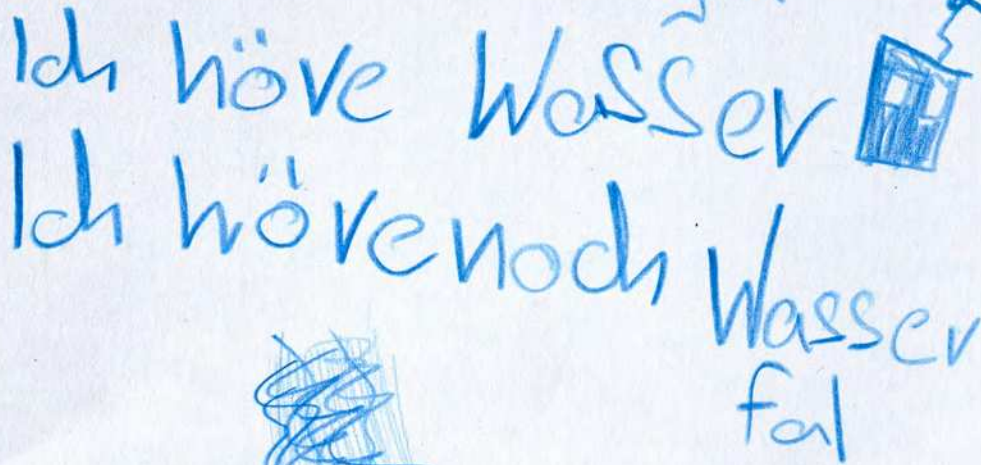 Ich höre Wasser
Ich höre noch Wasser
fal